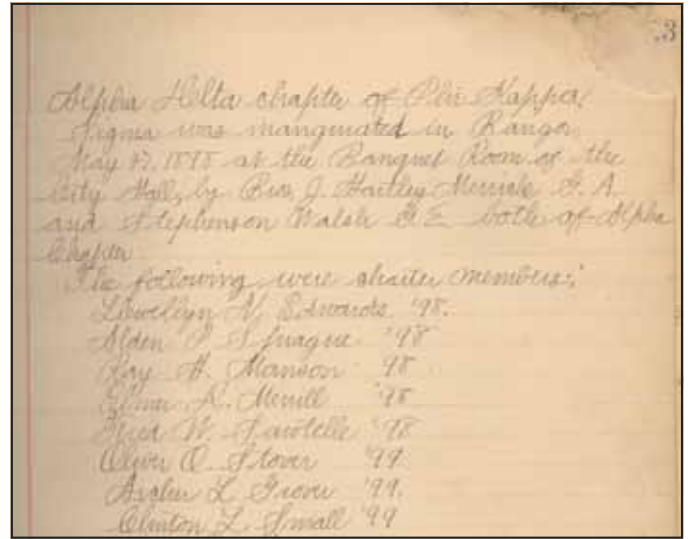 3
Alpha Delta chapter of Phi Kappa
Sigma was inaugurated in Bangor,
May 17, 1898 at the Banquet Room of the
City Hall, by Bros. J. Hartley Merrick G. A.
and Stephenson Walsh G Σ both of Alpha
Chapter
The following were charter members:
Llewellyn N. Edwards '98.
Alden P. Sprague '98
Ray H. Manson 98
A. Merrill '98
W. Sawtelle '98
Oliver O. Stover '99
Archer L. Grover '99.
Clinton L. Small '99